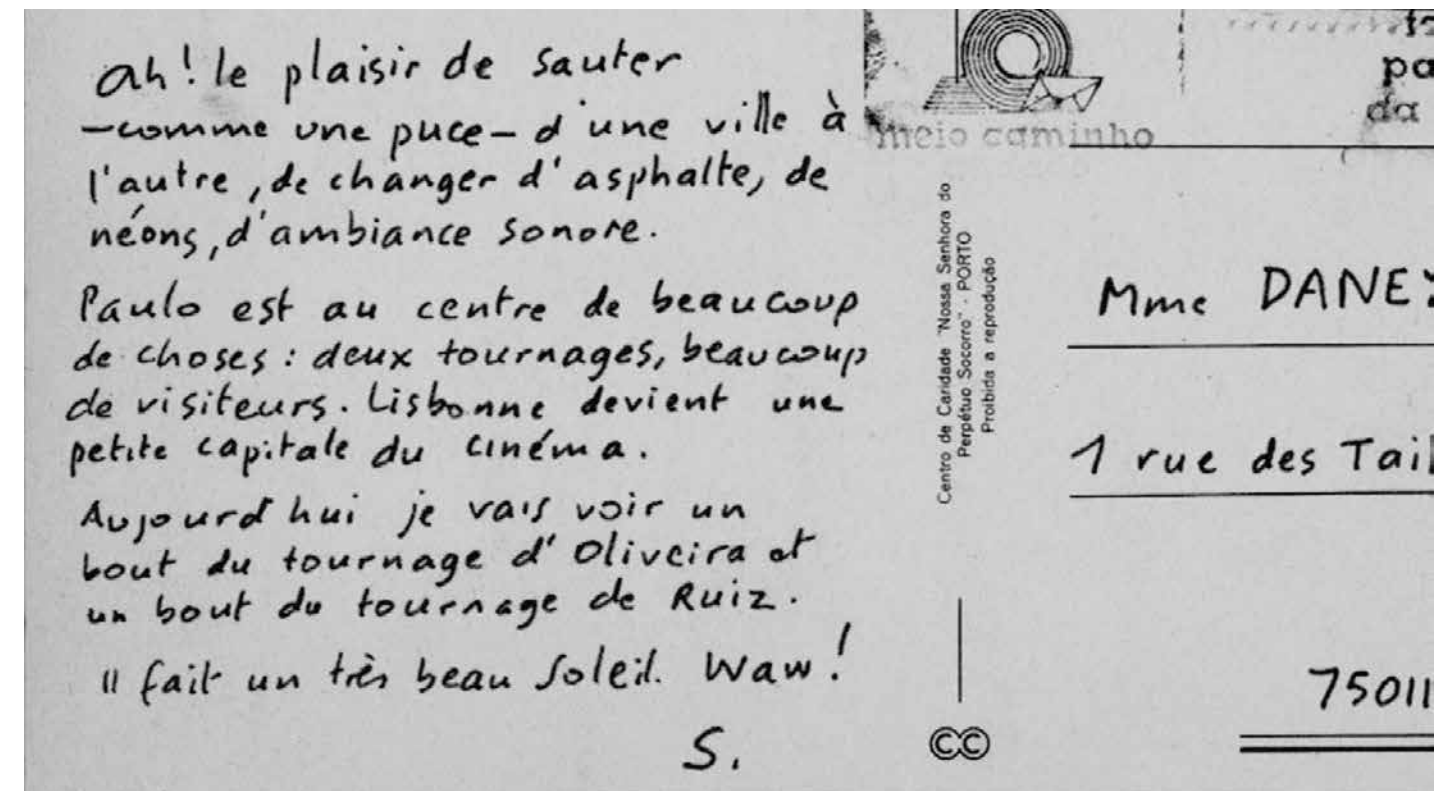 ah! le plaisir de sauter
– comme une puce – d'une ville à
l'autre, de changer d'asphalte, de
néons, d'ambiance sonore.
Paulo est au centre de beaucoup
de choses : deux tournages, beaucoup
de visiteurs. Lisbonne devient une
petite capitale du cinéma.
Aujourd'hui je vais voir un
bout du tournage d'Oliveira et
un bout du tournage de Ruiz.
Il fait un très beau soleil. Waw!
S.
meio caminho
pa
da
Centro de Caridade "Nossa Senhora do
Perpétuo Socorro" - PORTO
Proibida a reprodução
Mme DANEY
1 rue des Tail
75011
CC